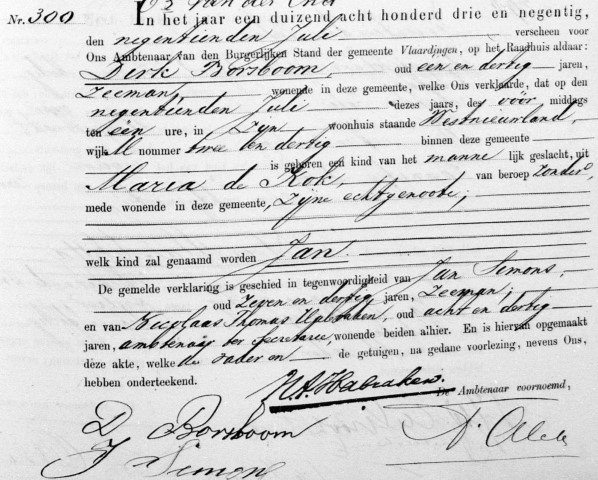 Nr. 300
In het jaar een duizend acht honderd drie en negentig,
den negentienden Juli verscheen voor
Ons Ambtenaar van den Burgerlijken Stand der gemeente Vlaardingen, op het Raadhuis aldaar:
Dirk Borsboom, oud een en dertig jaren,
Zeeman, wonende in deze gemeente, welke Ons verklaarde, dat op den
negentienden Juli dezes jaars, des voor middags
ten een ure, in zijn woonhuis staande Westnieuwland,
wijk nommer twee en dertig binnen deze gemeente
is geboren een kind van het manne lijk geslacht, uit
Maria de Kok, van beroep zonder,
mede wonende in deze gemeente, zijne echtgenoote;
welk kind zal genaamd worden Jan.
De gemelde verklaring is geschied in tegenwoordigheid van Jan Simons,
oud zeven en dertig jaren, Zeeman;
en van Nicolaas Thomas Habraken, oud acht en dertig
jaren, ambtenaar ter secretarie, wonende beiden alhier. En is hiervan opgemaakt
deze akte, welke de vader en de getuigen, na gedane voorlezing, nevens Ons,
hebben onderteekend.
Habraken.
De Ambtenaar voornoemd,
D Borsboom
J Simons